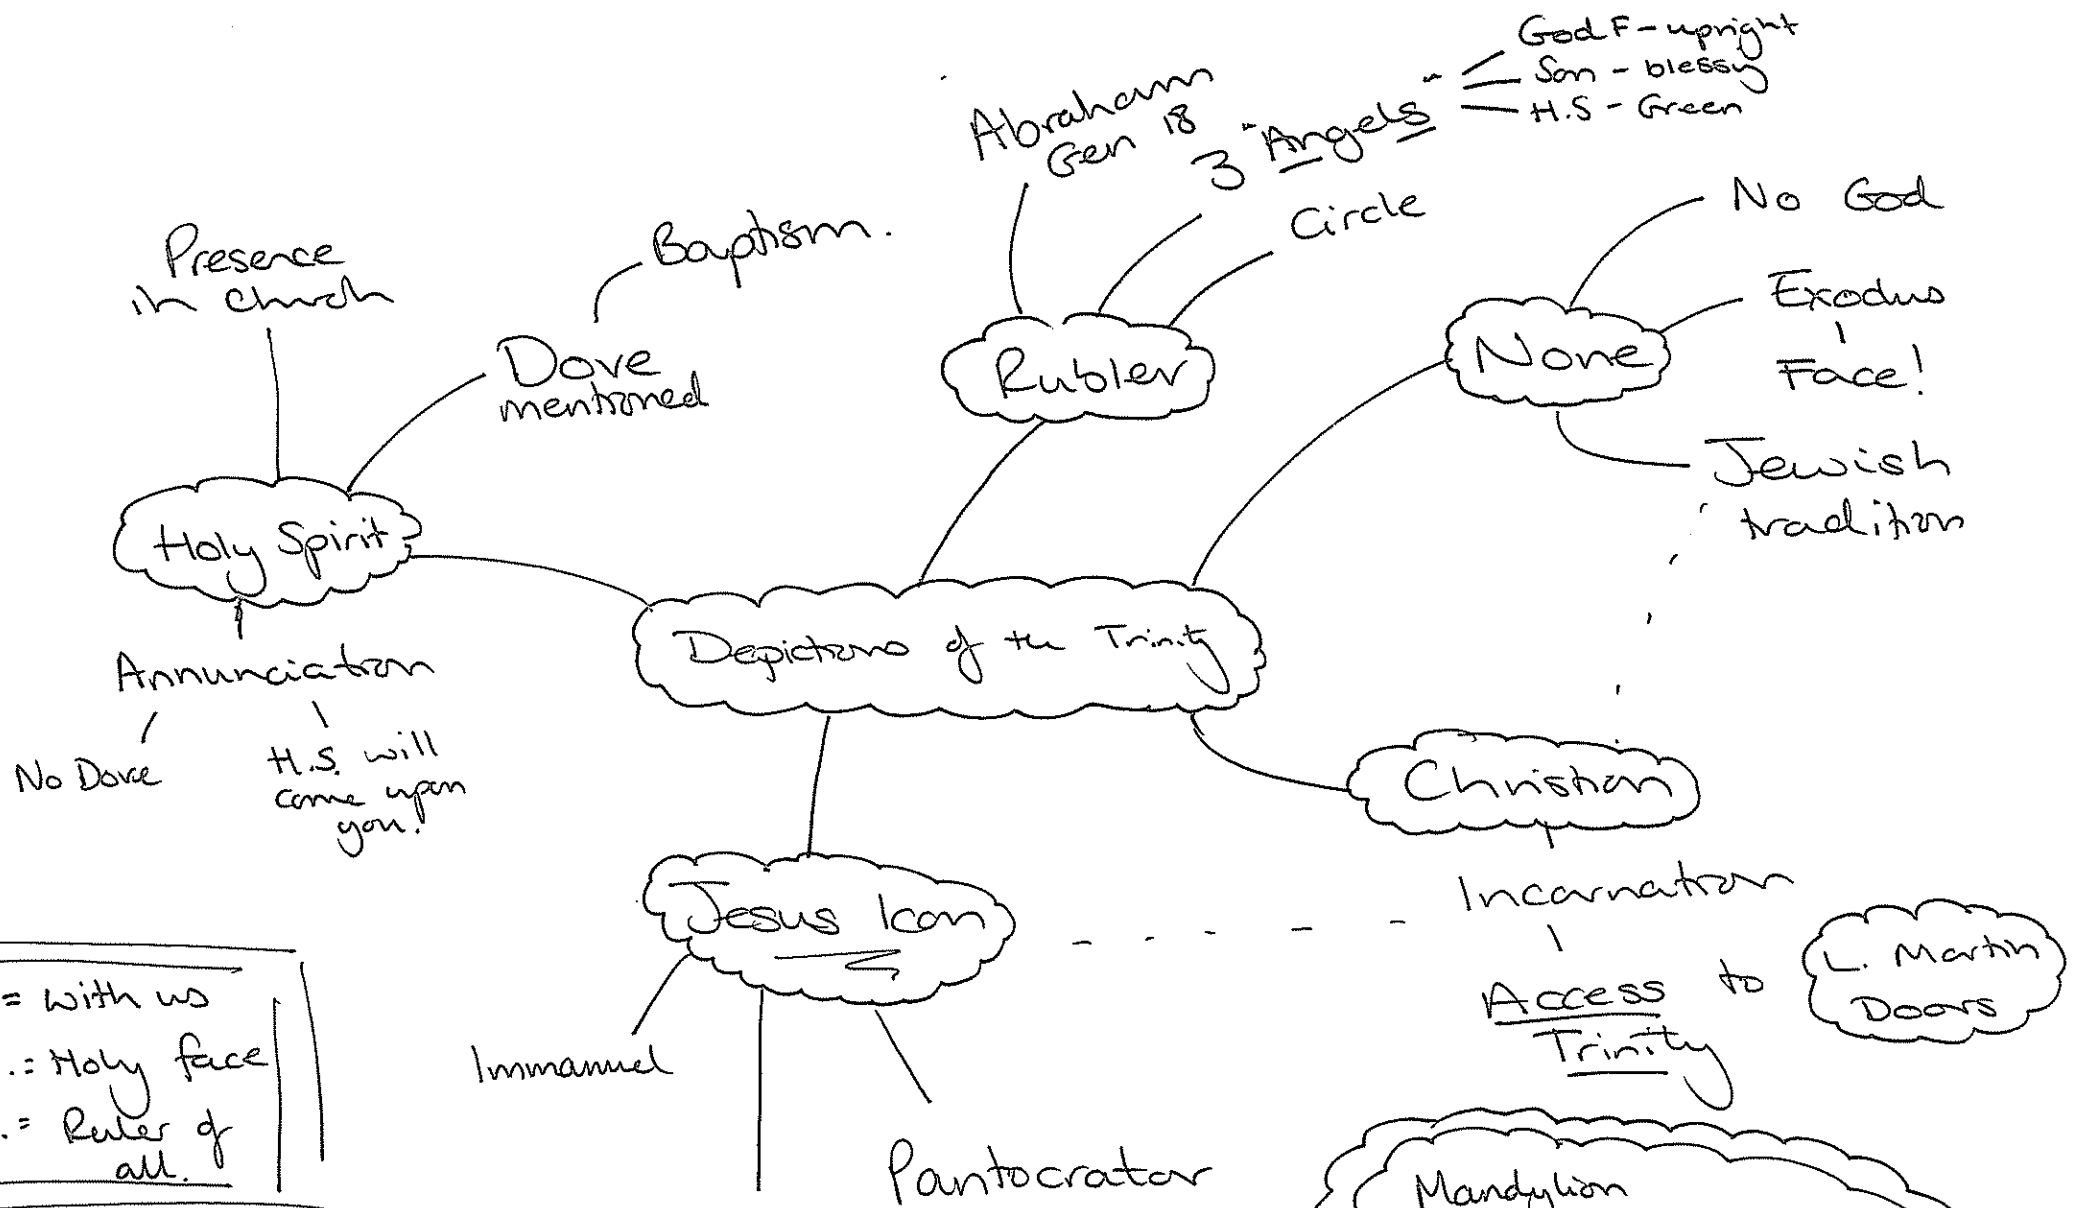 God F - upright
Son - blessy
H.S - Green
Abraham
Gen 18
3 Angels
Circle
No God
Exodus
Face!
Jewish
tradition
None
Rublev
Baptism.
Presence
in church
Dove
mentioned
Holy Spirit
Annunciation
No Dove
H.S. will
come upon
you.
Depictions of the Trinity
Christian
Incarnation
Access to
Trinity
L. Martin
Doors
Jesus Icon
Immanuel
Pantocrator
Mandylion
= with us
.= Holy face
.= Ruler of
all.